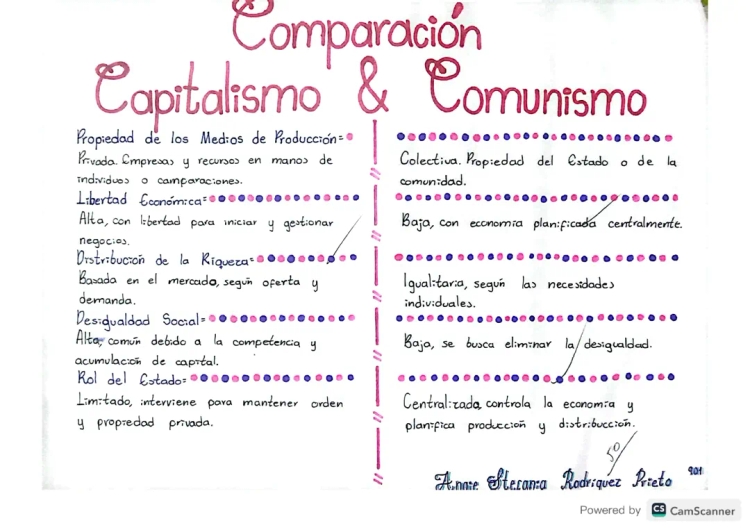 Comparación
Capitalismo & Comunismo
Propiedad de los Medios de Producción=
Privada. Empresas y recursos en manos de
individuos o comparaciones.
Libertad Económica=
Alta, con libertad para iniciar y gestionar
negocios.
Distribución de la Riqueza=
Basada en el mercado, según oferta y
demanda.
Desigualdad Social=
Alta, común debido a la competencia y
acumulación de capital.
Rol del Estado=
Limitado, interviene para mantener orden
y propiedad privada.
Colectiva. Propiedad del Estado o de la
comunidad.
Baja, con economía planificada centralmente.
Igualitaria, según las necesidades
individuales.
Baja, se busca eliminar la desigualdad.
Centralizada, controla la economía y
planifica producción y distribucción.
50
Annie Stefania Rodriguez Prieto 901
Powered by CS CamScanner